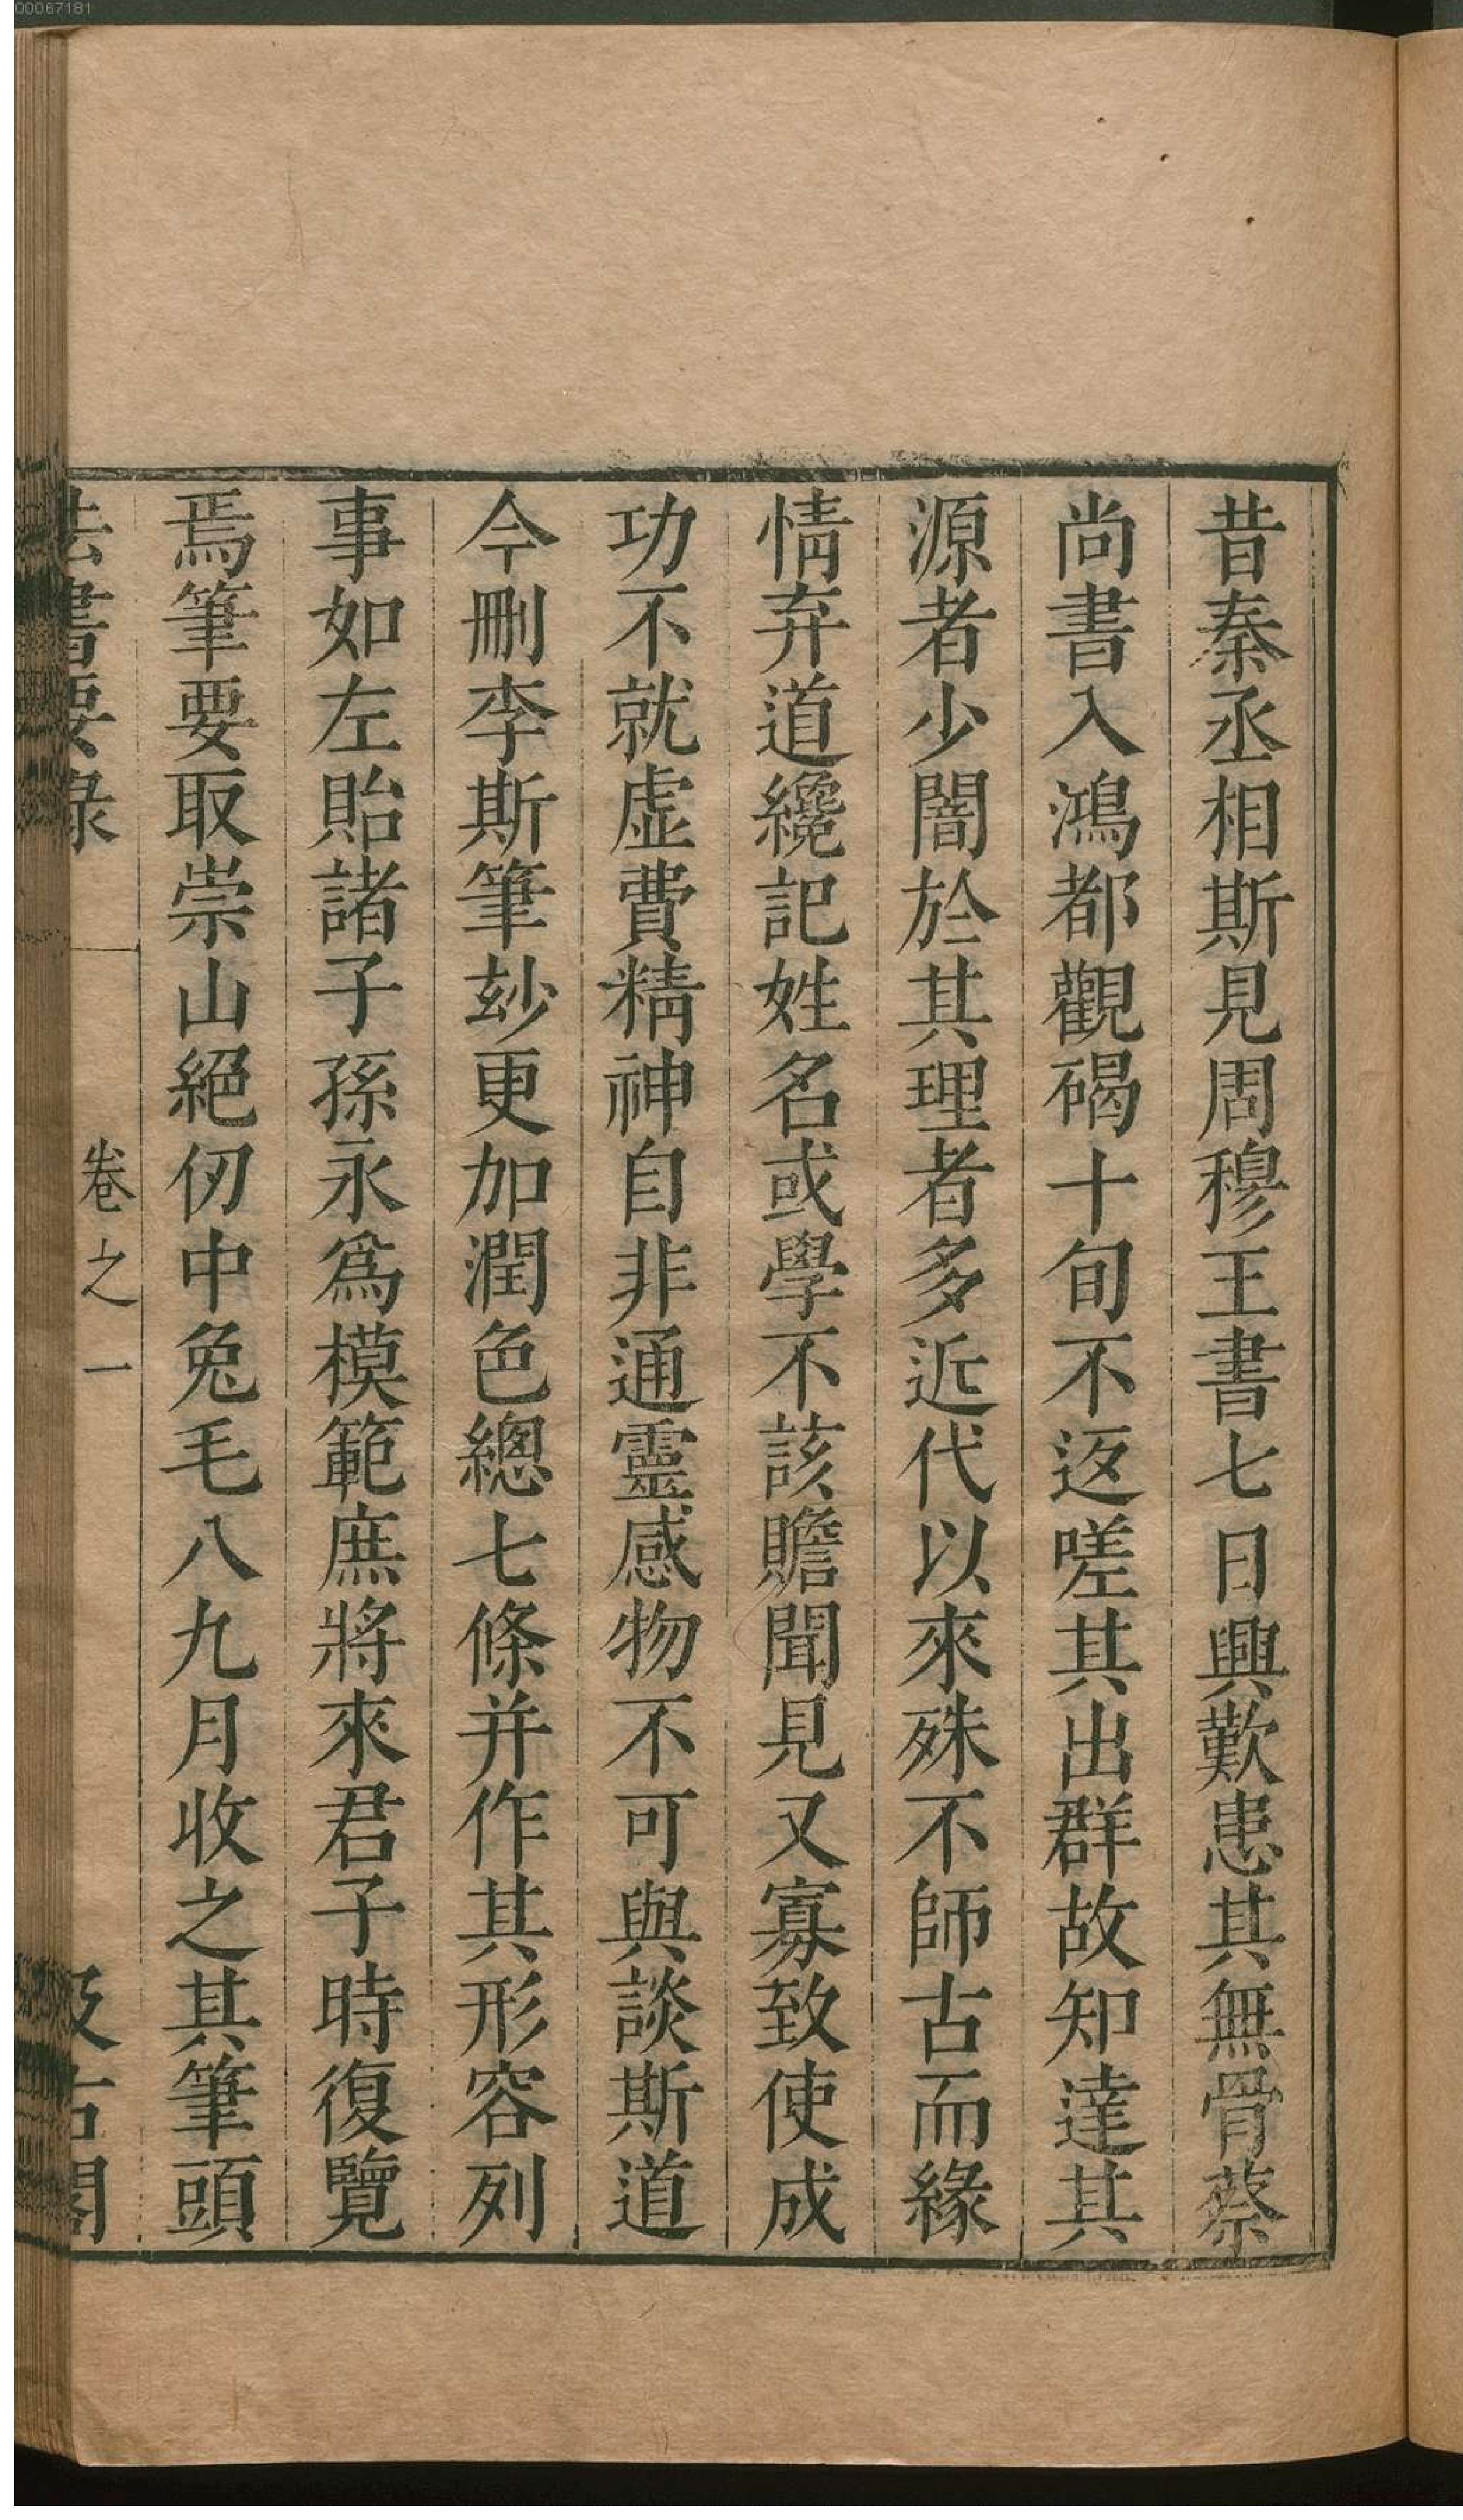 昔秦丞相斯見周穆王書七日興歎患其無骨蔡
尚書入鴻都觀碣十旬不返嗟其出群故知達其
源者少闇於其理者多近代以來殊不師古而緣
情弃道纔記姓名或學不該贍聞見又寡致使成
功不就虛費精神自非通靈感物不可與談斯道
今刪李斯筆玅更加潤色總七條并作其形容列
事如左貽諸子孫永爲模範庶將來君子時復覽
焉筆要取崇山絕仞中兔毛八九月收之其筆頭
法書要錄
卷之一
汲古閣
00067181